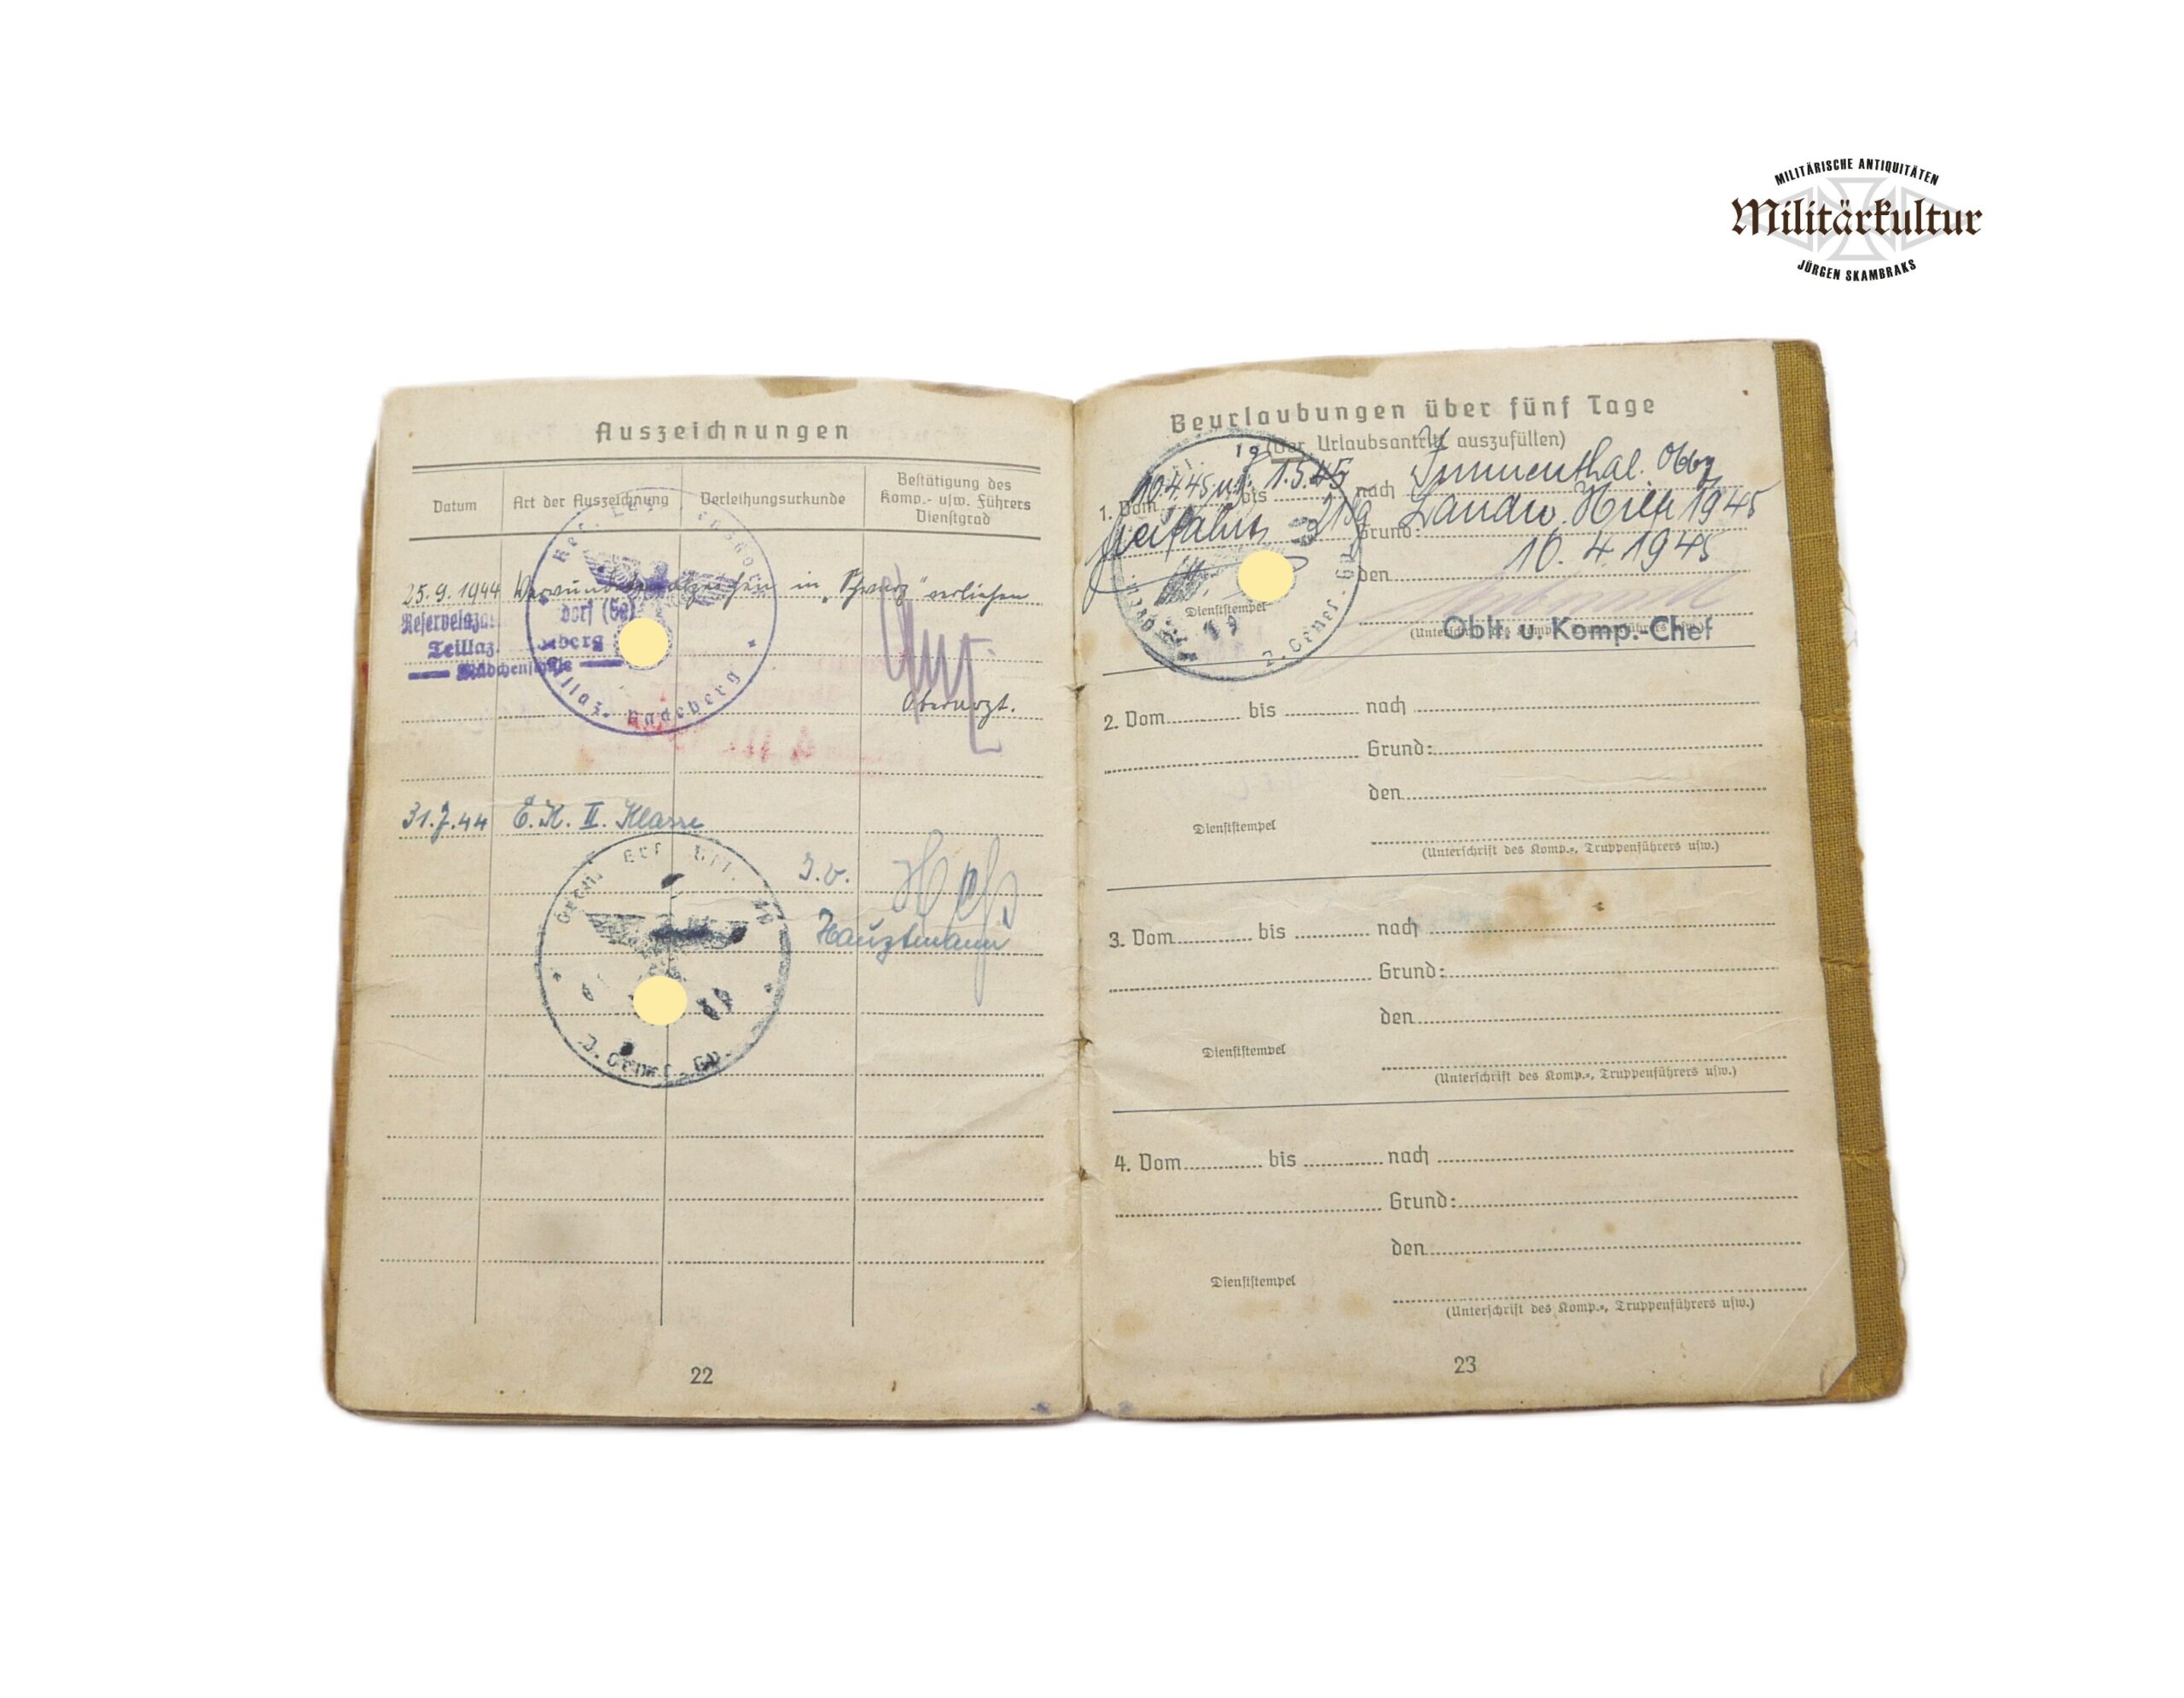 MILITÄRISCHE ANTIQUITÄTEN
Militärkultur
JÜRGEN SKAMBRAKS
Auszeichnungen
Datum
Art der Auszeichnung
Verleihungsurkunde
Bestätigung des
Komp.- usw. Führers
Dienstgrad
25.9.1944 Verwundetenabzeichen in „Schwarz" verliehen
dorf (Sa)
Teillaz.
Mädchenschule
Teillaz. Radeberg
Oberarzt.
31.7.44 E.K. II. Klasse
J.V.
Hauptmann
2. Genes.
22
Beurlaubungen über fünf Tage
(Vor Urlaubsantritt auszufüllen)
1. Vom 10.4.45 bis 1.5.45 nach Immenthal.
Grund: Landw. Hilfe 1945
den 10.4.1945
Dienststempel
Oblt. u. Komp.-Chef
2. Genes.
2. Vom bis nach
Grund:
den
Dienststempel
(Unterschrift des Komp.-, Truppenführers usw.)
3. Vom bis nach
Grund:
den
Dienststempel
(Unterschrift des Komp.-, Truppenführers usw.)
4. Vom bis nach
Grund:
den
Dienststempel
(Unterschrift des Komp.-, Truppenführers usw.)
23